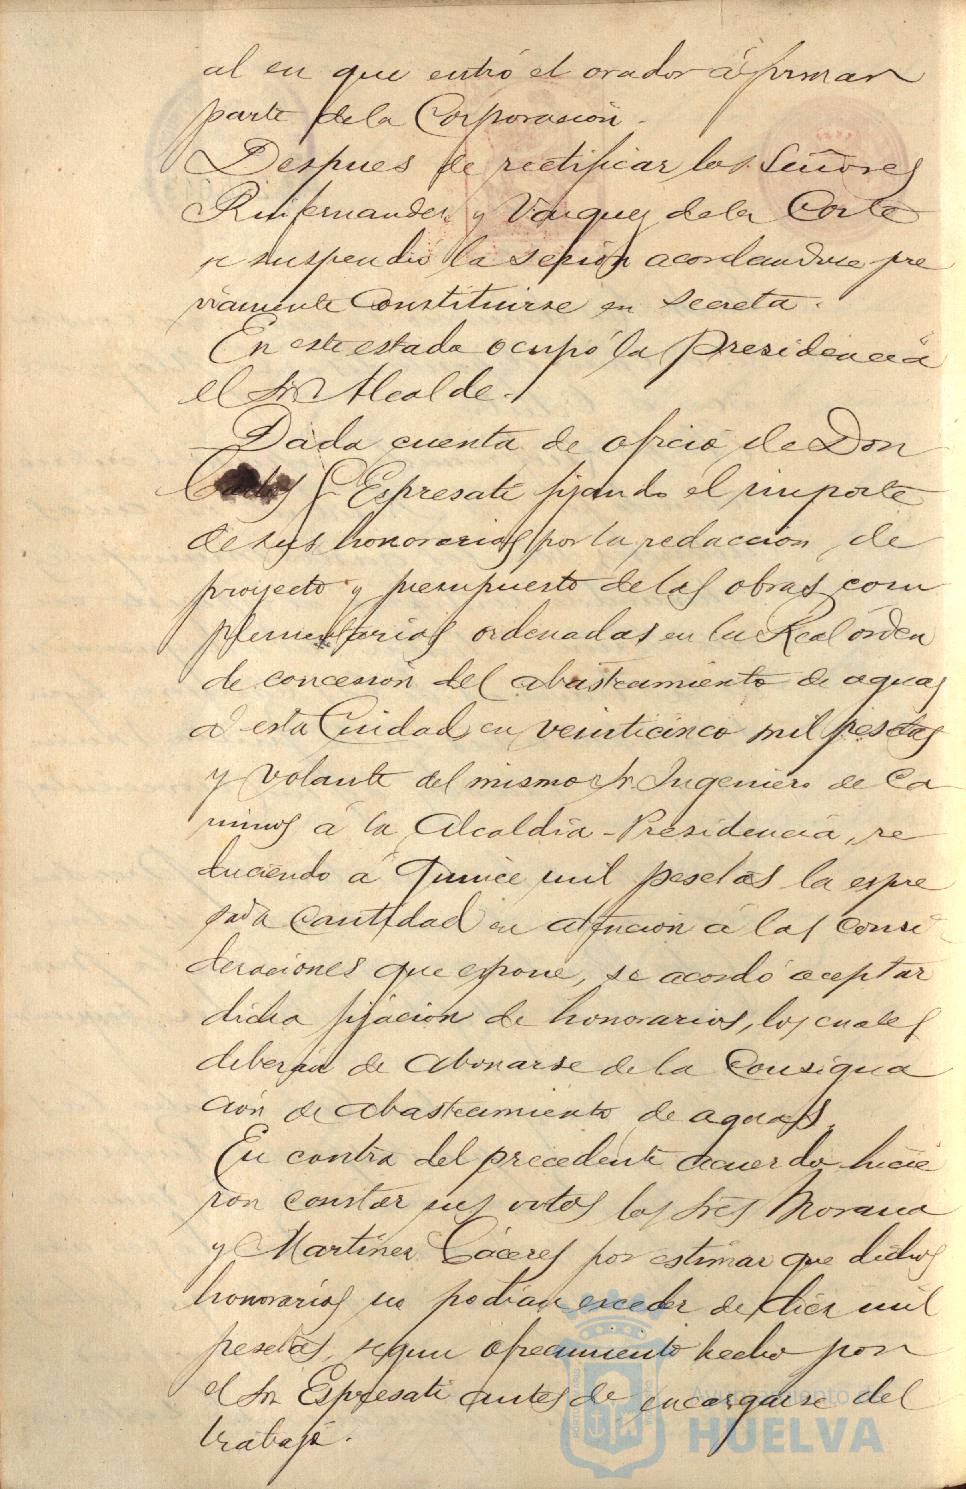 al en que entró el orador á formar
parte de la Corporación.
Despues de rectificar los Señores
Ruifernandez y Vazquez de la Corte
se suspendió la sesión acordandose pre
viamente Constituirse en secreta.
En este estado ocupó la Presidencia
el Sr. Alcalde.
Dada cuenta de oficio de Don
Carlos L Espresati fijando el importe
de sus honorarios por la redacción de
proyecto y presupuesto de las obras com
plementarias ordenadas en la Real órden
de concesión del abastecimiento de aguas
á esta Ciudad en veinticinco mil pesetas
y volante del mismo Sr. Ingeniero de Ca
minos á la Alcaldia-Presidencia, re
duciendo á Quince mil pesetas la espre
sada cantidad en atención á las consi
deraciones que espone, se acordó aceptar
dicha fijación de honorarios, los cuales
deberán de abonarse de la Consigna
ción de abastecimiento de aguas.
En contra del precedente acuerdo hicie
ron constar sus votos los Sres Morana
y Martinez Cáceres por estimar que dichos
honorarios no podian esceder de diez mil
pesetas, segun ofrecimiento hecho por
el Sr. Espresati antes de encargarse del
trabajo.
Ayuntamiento de
HUELVA